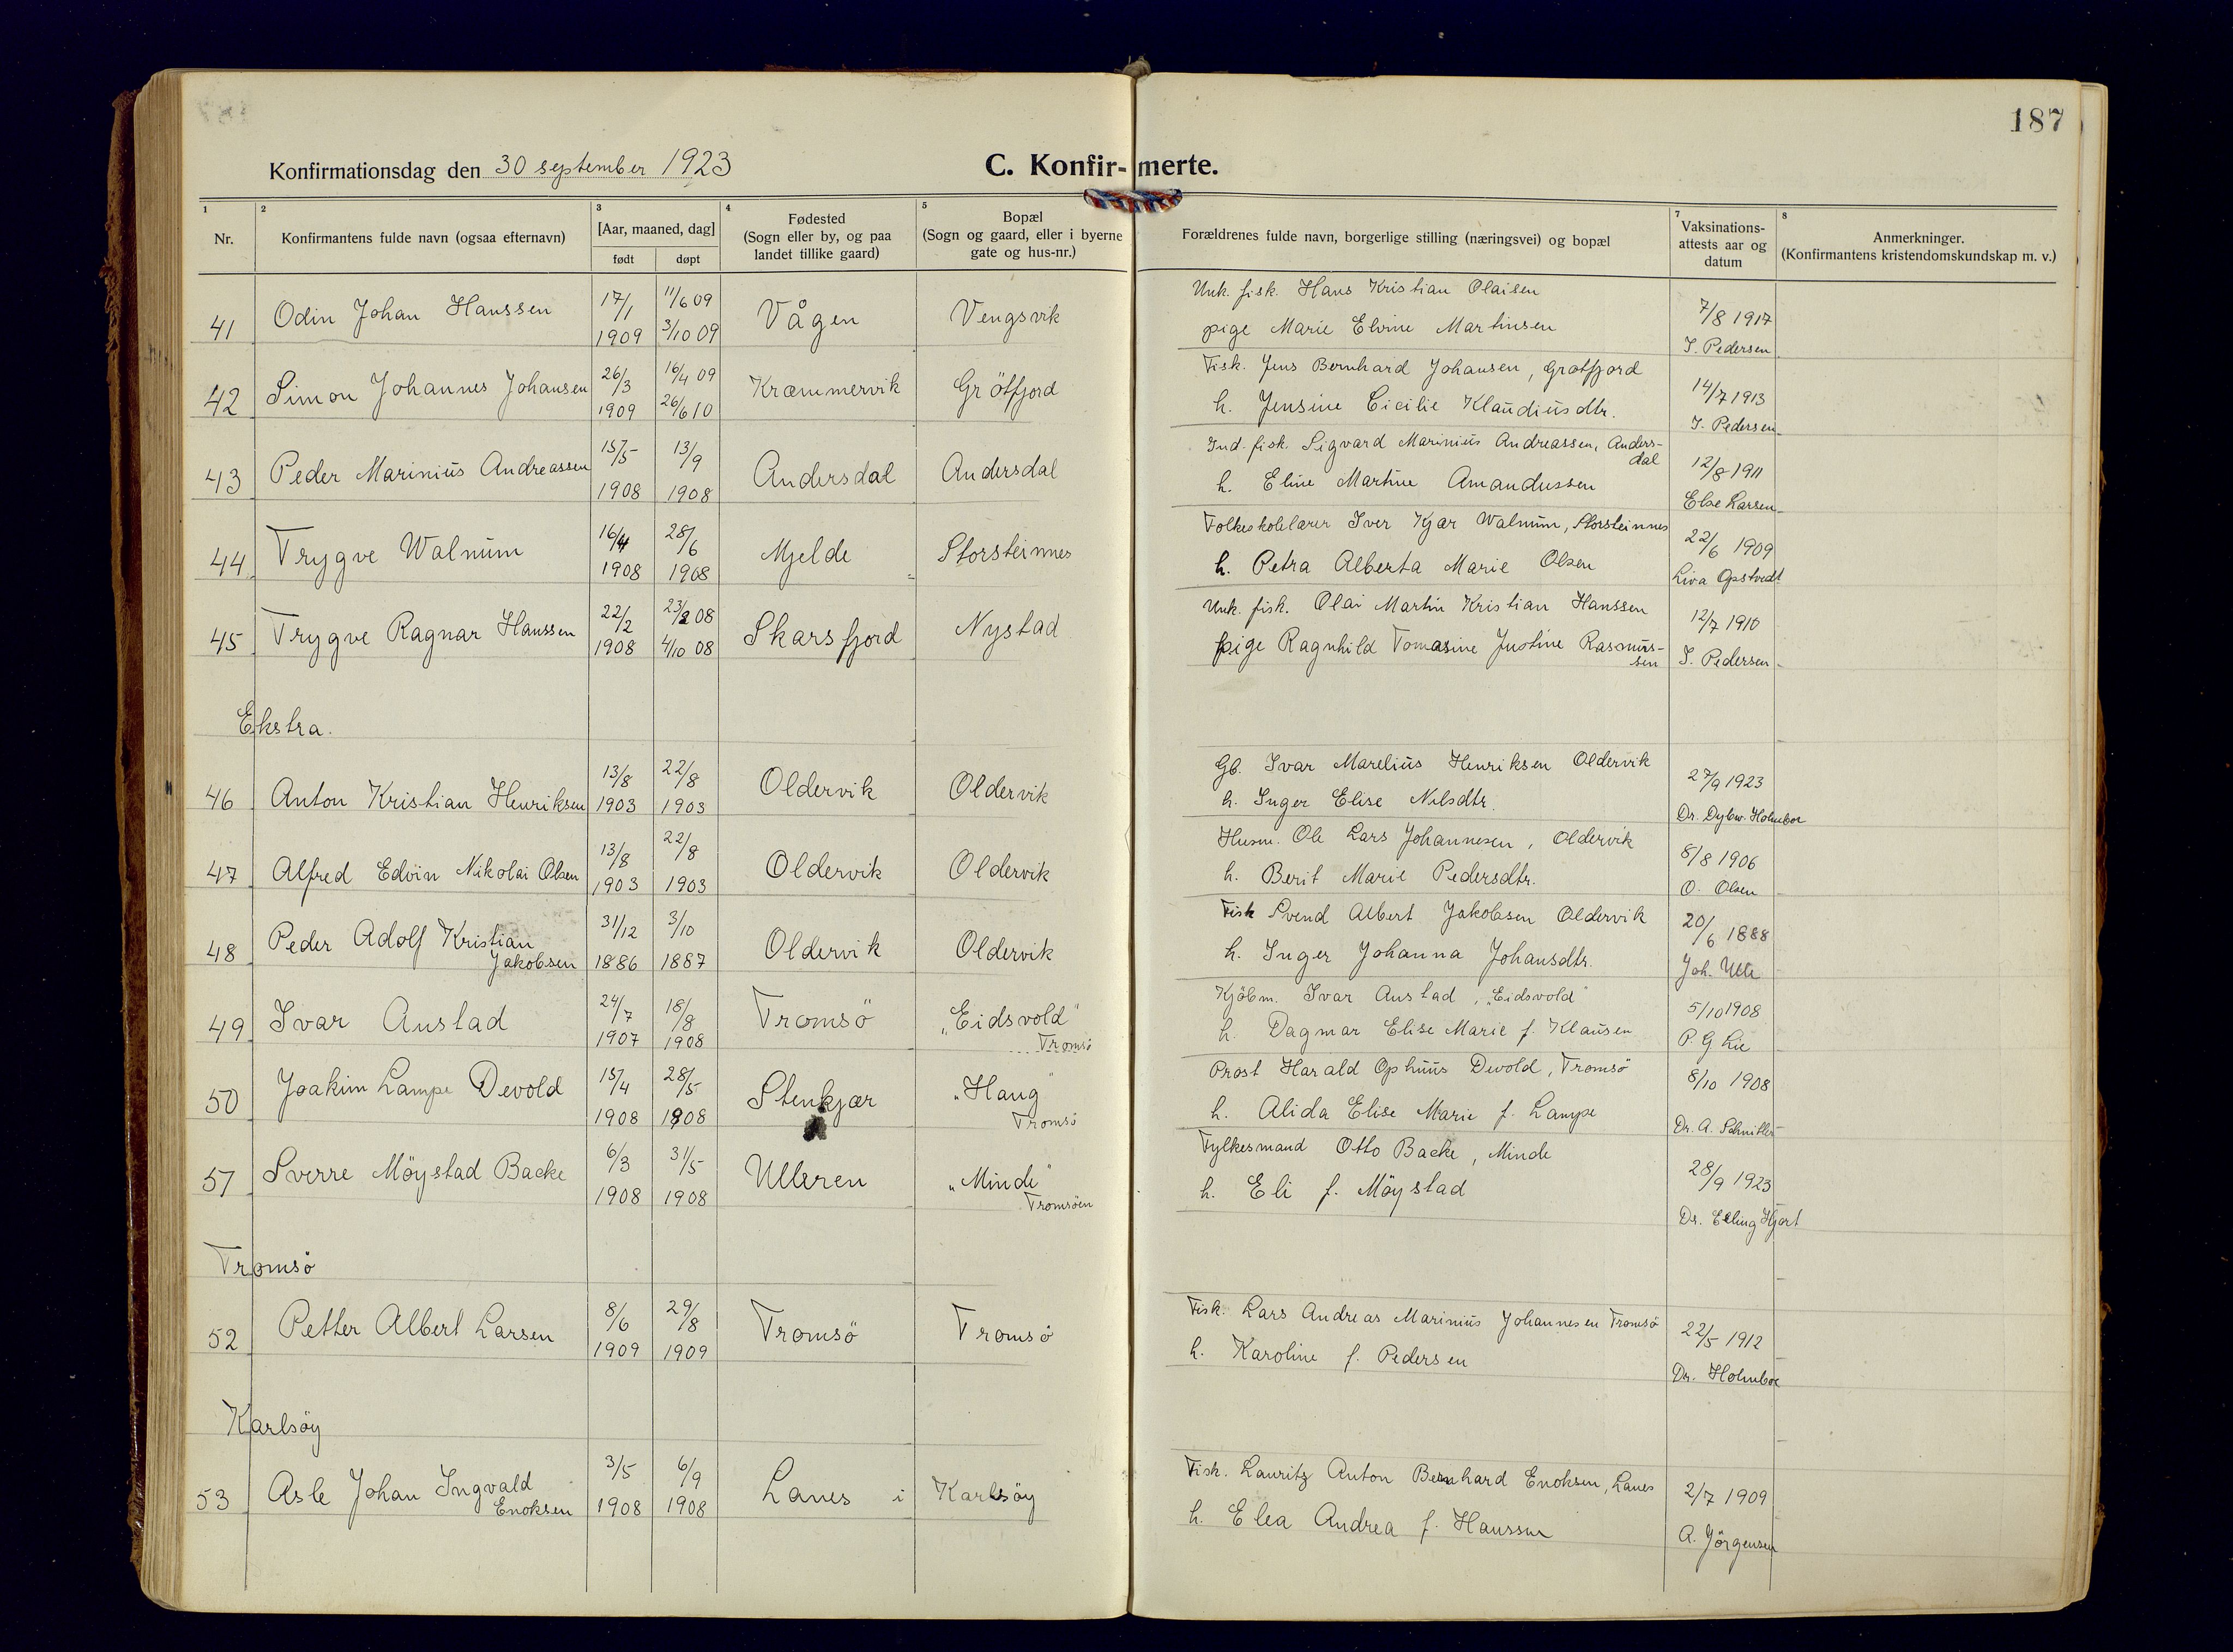 187
Konfirmationsdag den 30 september 1923
C. Konfir- merte.
1 2 3 4 5 7 8
Nr.
Konfirmantens fulde navn (ogsaa efternavn)
[Aar, maaned, dag]
født døpt
Fødested
(Sogn eller by, og paa
landet tillike gaard)
Bopæl
(Sogn og gaard, eller i byerne
gate og hus-nr.)
Forældrenes fulde navn, borgerlige stilling (næringsvei) og bopæl
Vaksinations-
attests aar og
datum
Anmerkninger.
(Konfirmantens kristendomskundskap m. v.)
41 Odin Johan Hanssen 17/1 1909 11/6 09 3/10 09 Vågen Vengsvik
Unk. fisk. Hans Kristian Olaisen
pige Marie Elvine Martinsen
7/8 1917
I. Pedersen
42 Simon Johannes Johansen 26/3 1909 16/4 09 26/6 10 Kræmmervik Grötfjord
Fisk. Jens Bernhard Johansen, Grøtfjord
h. Jensine Cicilie Klaudiusdtr.
14/7 1913
I. Pedersen
43 Peder Marinius Andreassen 15/5 1908 13/9 1908 Andersdal Andersdal
Ind. fisk. Sigvard Marinius Andreassen, Anders-
dal
h. Eline Martine Amandussen
12/8 1911
Else Larsen
44 Trygve Walnum 16/4 1908 28/6 1908 Mjelde Storsteinnes
Folkeskolelærer Iver Kjær Walnum, Storsteinnes
h. Petra Alberta Marie Olsen
22/6 1909
Liva Opstvedt
45 Trygve Ragnar Hanssen 22/2 1908 23/2 08 4/10 08 Skarsfjord Nystad
Unk. fisk. Olai Martin Kristian Hanssen
pige Ragnhild Tomasine Justine Rasmus-
sen
12/7 1910
I. Pedersen
Ekstra.
46 Anton Kristian Henriksen 13/8 1903 22/8 1903 Oldervik Oldervik
Gb. Ivar Marelius Henriksen Oldervik
h. Inger Elise Nilsdtr.
27/9 1923
Dr. Dybw. Holmboe
47 Alfred Edvin Nikolai Olsen 13/8 1903 22/8 1903 Oldervik Oldervik
Husm. Ole Lars Johannesen, Oldervik
h. Berit Marie Pedersdtr.
8/8 1906
O. Olsen
48 Peder Adolf Kristian
Jakobsen 31/12 1886 3/10 1887 Oldervik Oldervik
Fisk Svend Albert Jakobsen Oldervik
h. Inger Johanna Johansdtr.
20/6 1888
Joh.
49 Ivar Austad 24/7 1907 18/8 1908 Tromsö „Eidsvold"
Tromsö
Kjöbm. Ivar Austad, „Eidsvold"
h. Dagmar Elise Marie f. Klausen
5/10 1908
P. G Lie
50 Joakim Lampe Devold 15/4 1908 28/5 1908 Stenkjær „Haug"
Tromsö
Prost Harald Ophuus Devold, Tromsö
h. Alida Elise Marie f. Lampe
8/10 1908
Dr. A. Schnitler
51 Sverre Möystad Backe 6/3 1908 31/5 1908 Ulleren „Minde"
Tromsöen
Fylkesmand Otto Backe, Minde
h. Eli f. Möystad
28/9 1923
Dr. Elling Hjort
Tromsö
52 Petter Albert Larsen 8/6 1909 29/8 1909 Tromsö Tromsö
Fisk. Lars Andreas Marinius Johannesen Tromsö
h. Karoline f. Pedersen
22/5 1912
Dr. Holmboe
Karlsöy
53 Asle Johan Ingvald
Enoksen 3/5 1908 6/9 1908 Lanes i Karlsöy
Fisk. Lauritz Anton Bernhard Enoksen, Lanes
h. Elea Andrea f. Hanssen
2/7 1909
A. Jörgensen